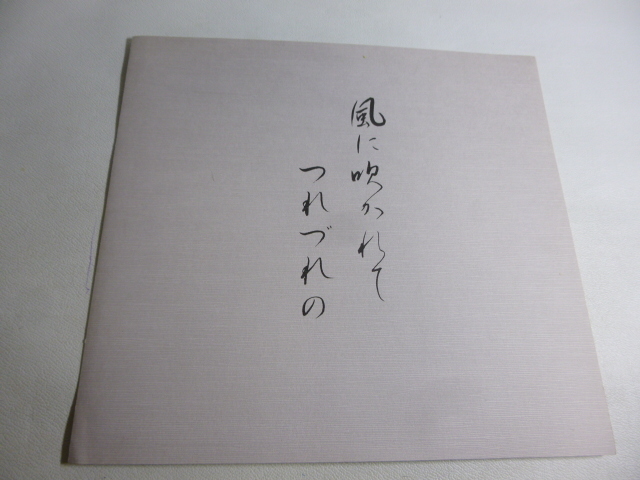 風に吹かれて
つれづれの